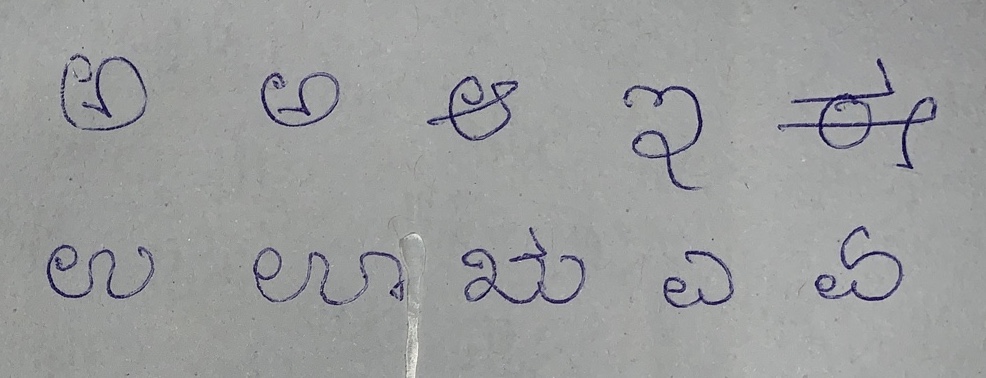 ಅ ಅ ಆ ಇ ಈ
ಉ ಊ ಋ ಎ ಏ